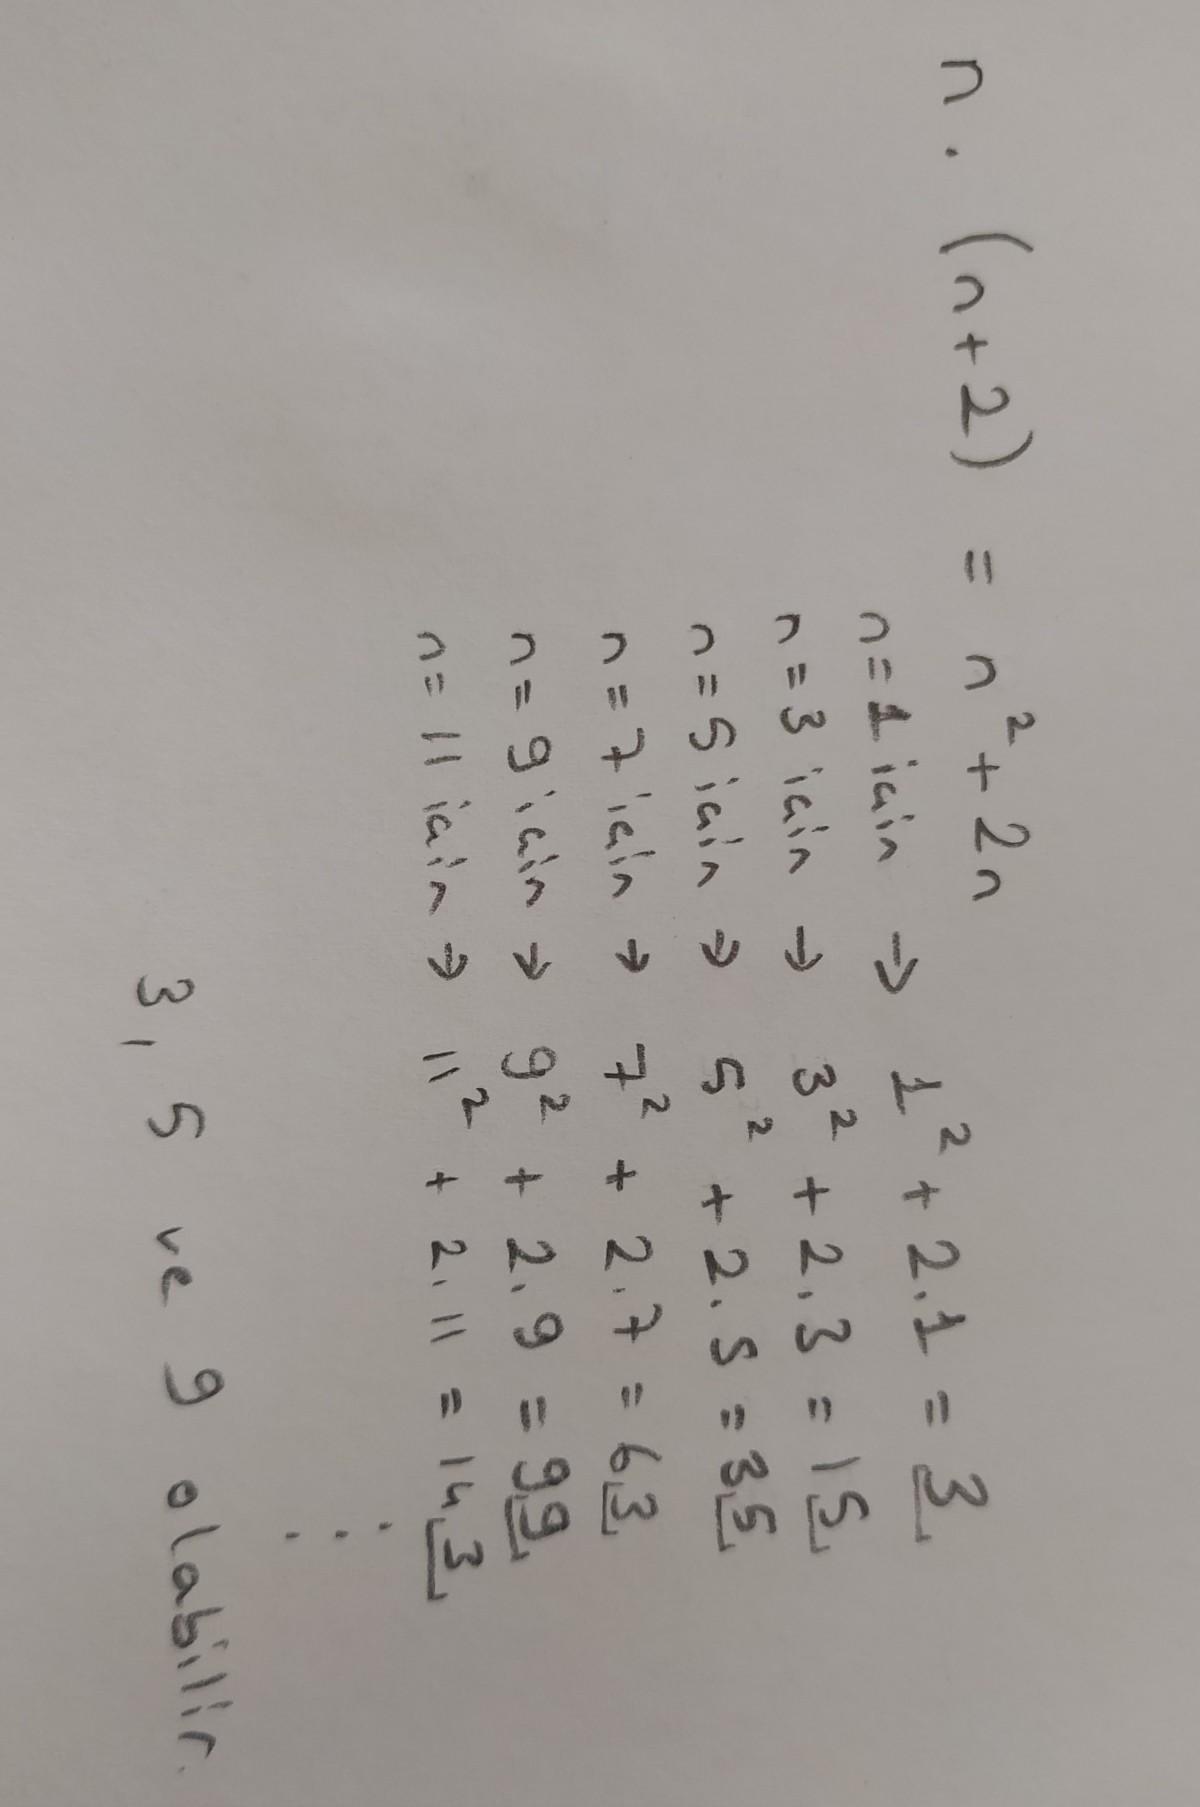 n . (n+2) = n² + 2n
n = 1 için → 1² + 2.1 = 3
n = 3 için → 3² + 2.3 = 15
n = 5 için → 5² + 2.5 = 35
n = 7 için → 7² + 2.7 = 63
n = 9 için → 9² + 2.9 = 99
n = 11 için → 11² + 2.11 = 143
⋮
3, 5 ve 9 olabilir.